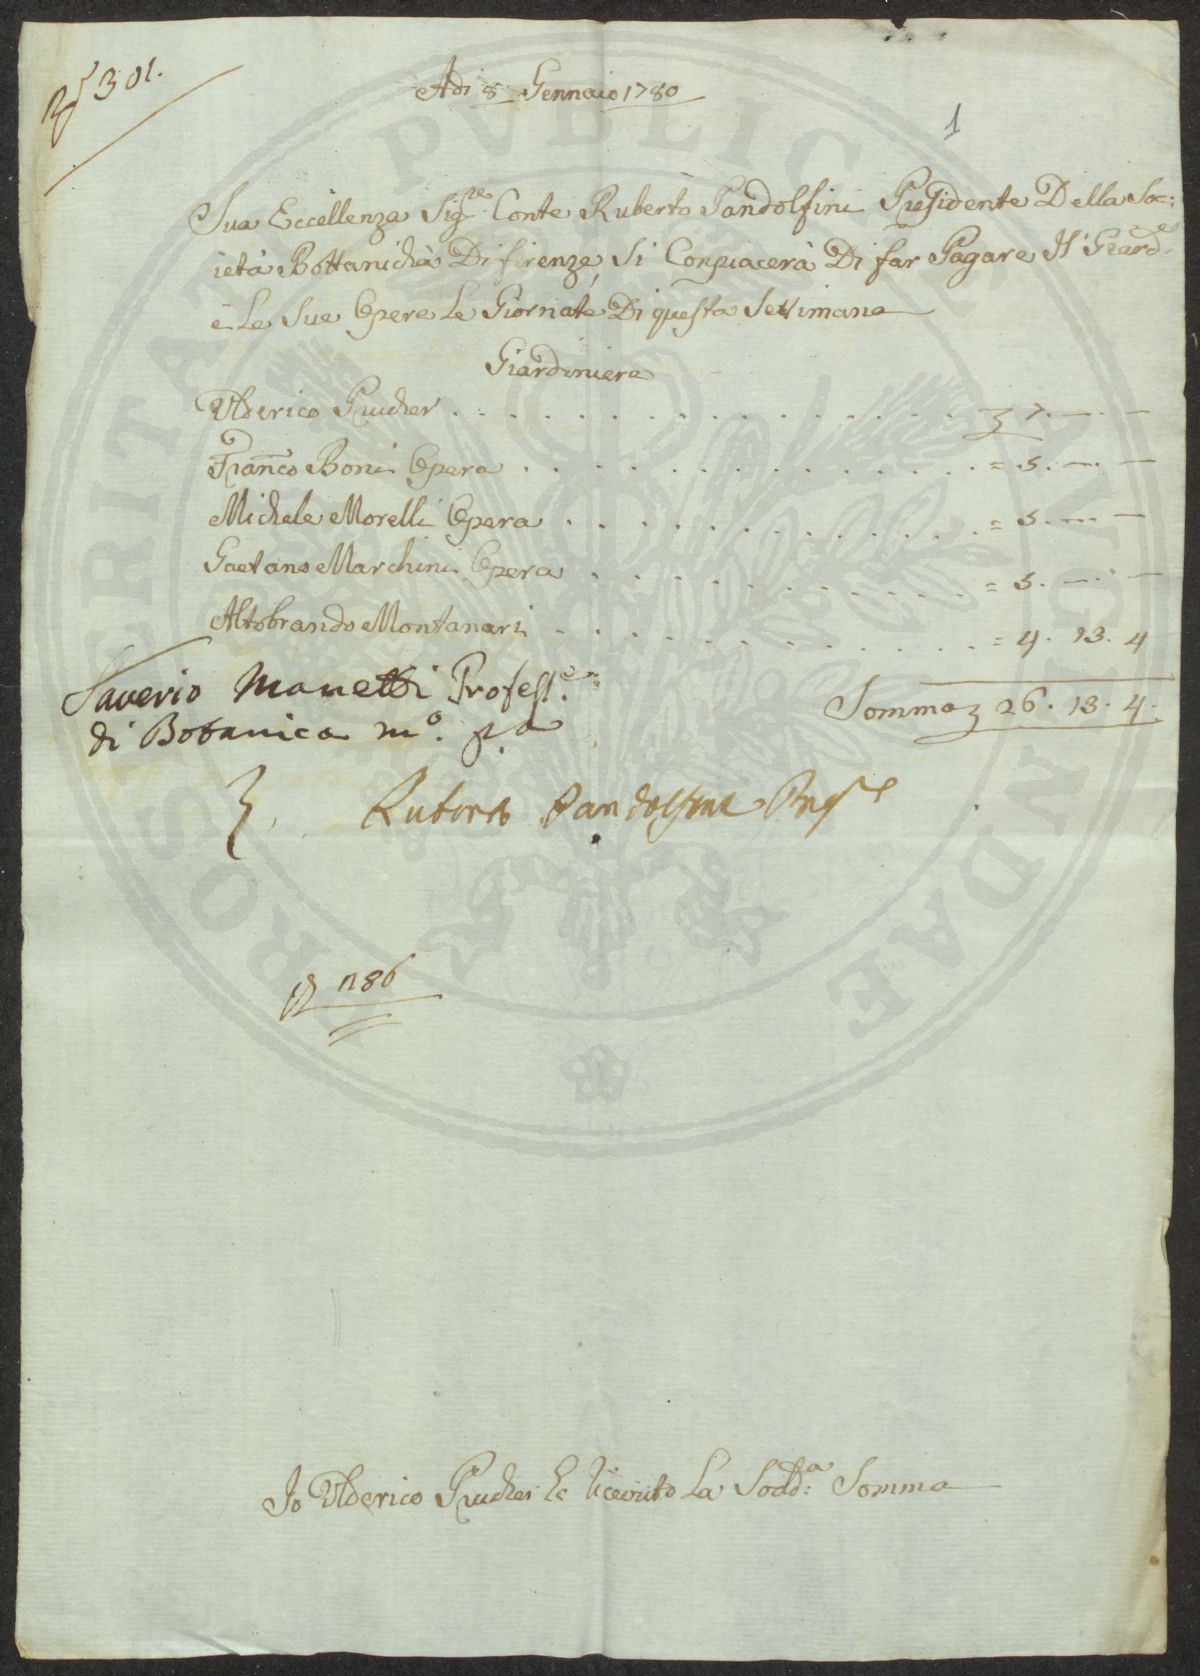 301.
Adi 8 Gennaio 1780
1
Sua Eccellenza Sig.re Conte Ruberto Pandolfini Presidente Della Soc:
ietà Bottanicha Di firenze, Si Conpiacerà Di far Pagare Il Giard.e
è Le Sue Opere Le Giornate Di questa Settimana
Giardiniere
Ulderico Prucher . . . . . . . . . . . . . . . . . 7. — . —
Franco Boni Opera . . . . . . . . . . . . . . = 5. — . —
Michele Morelli Opera . . . . . . . . . . . . = 5. — . —
Gaetano Marchini Opera . . . . . . . . . . . = 5. — . —
Altobrando Montanari . . . . . . . . . . . . = 4. 13. 4
Saverio Manetti Profess.e
di Botanica m.o p.a
Somma 26. 13. 4.
Ruberto Pandolfini Pres.e
n 86
Io Ulderico Prucher hò Ricevuto La Sodd.a Somma
PVBLICAE
MAGNDAE
PROSPERITATI